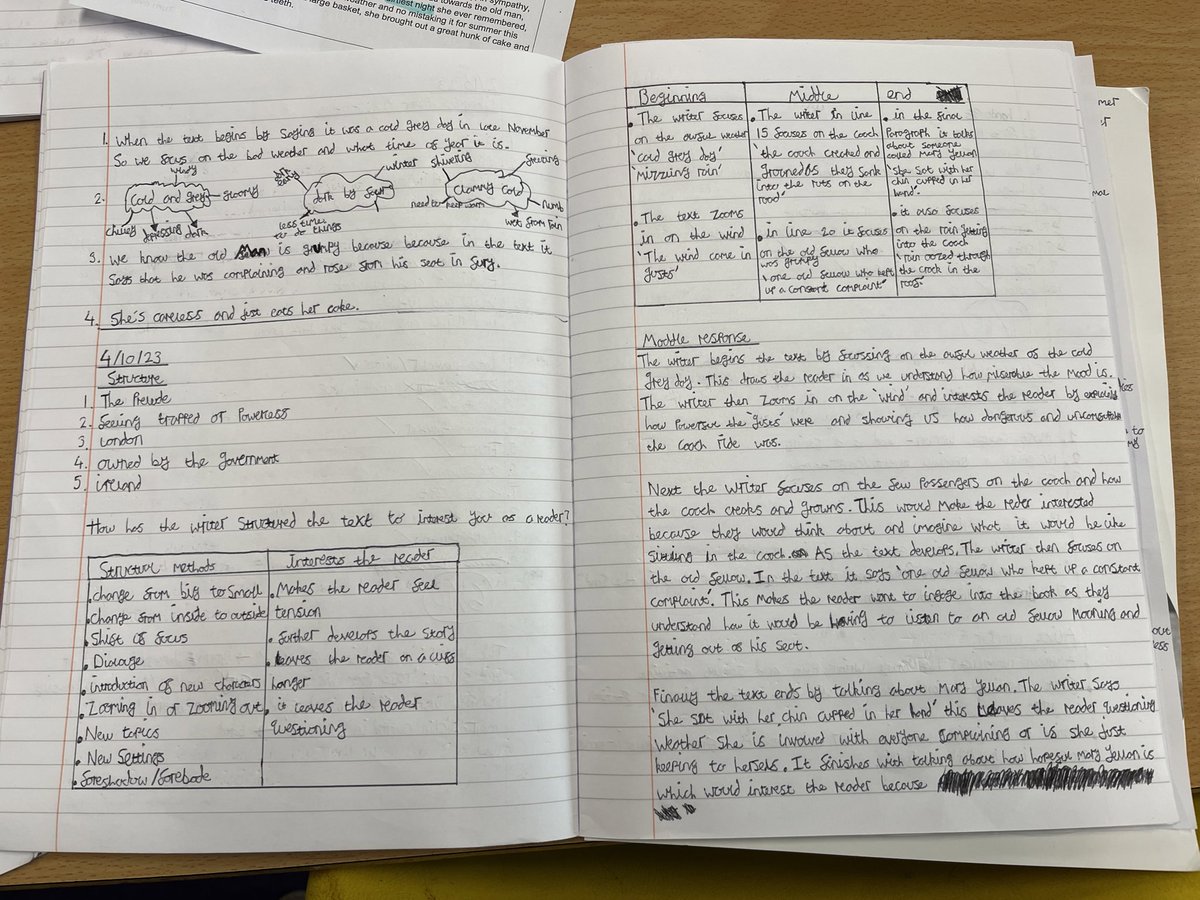 sympathy,
towards the old man,
niest night she ever remembered,
eather and no mistaking it for summer this
large basket, she brought out a great hunk of cake and
teeth.
1. When the text begins by saying it was a cold grey day in late November
So we focus on the bad weather and what time of year it is.
2.
windy
Cold and grey
gloomy
chilly
dark
dark by four
winter
less time
to do things
Clammy Cold
shivering
freezing
numb
need to keep warm
wet from rain
3. We know the old man is grumpy because because in the text it
says that he was complaining and rose from his seat in fury.
4. She's careless and just eats her cake.
4/10/23
Structure
1. The Prelude
2. Feeling trapped or Powerless
3. London
4. owned by the government
5. ireland
How has the writer structured the text to interest you as a reader?
Structur methods
. change from big to small
. change from inside to outside
. Shift of focus
. Dialouge
. introduction of new characters
. Zooming in or Zooming out
. New topics
. New Settings
. foreshadow/forebode
Interests the reader
. Makes the reader feel
tension
. further develops the story
. leaves the reader on a cliff
hanger
. it leaves the reader
questioning
Beginning
. The writer focuses
on the awful weather
'cold grey day'
'mizzling rain'
. The text zooms
in on the wind
'The wind came in
gusts'
Middle
. The writer in line
15 focuses on the coach
'the coach creaked and
groaned as they sank
into the ruts on the
road'
. in line 20 it focuses
on the old fellow who
was grumpy
'one old fellow who kept
up a constant complaint'
end
. in the final
Paragraph it talks
about someone
called Mary Yellan
'She sat with her
chin cupped in her
hand'.
. it also focuses
on the rain getting
into the coach
'rain oozed through
the crack in the
roof.'
Moddle response
The writer begins the text by focussing on the awful weather of the cold
grey day. This draws the reader in as we understand how miserable the mood is.
The writer then zooms in on the 'wind' and interests the reader by
how powerful the 'gusts' were and showing us how dangerous and
the coach ride was.
Next the writer focuses on the few passengers on the coach and how
the coach creaks and growns. This would make the reder interested
because they would think about and imagine what it would be like
sitting in the coach. As the text develops. The writer then focuses on
the old fellow. In the text it says 'one old fellow who kept up a constant
complaint'. This makes the reader want to ingage into the book as they
understand how it would be having to listen to an old fellow moaning and
getting out of his seat.
Finally the text ends by talking about Mary Yellan. The writer says
'She sat with her chin cupped in her hand' this leaves the reader questioning
weather she is involved with everyone complaining or is she just
keeping to herself. It finishes with talking about how hopeful Mary Yellan is
which would interest the reader because